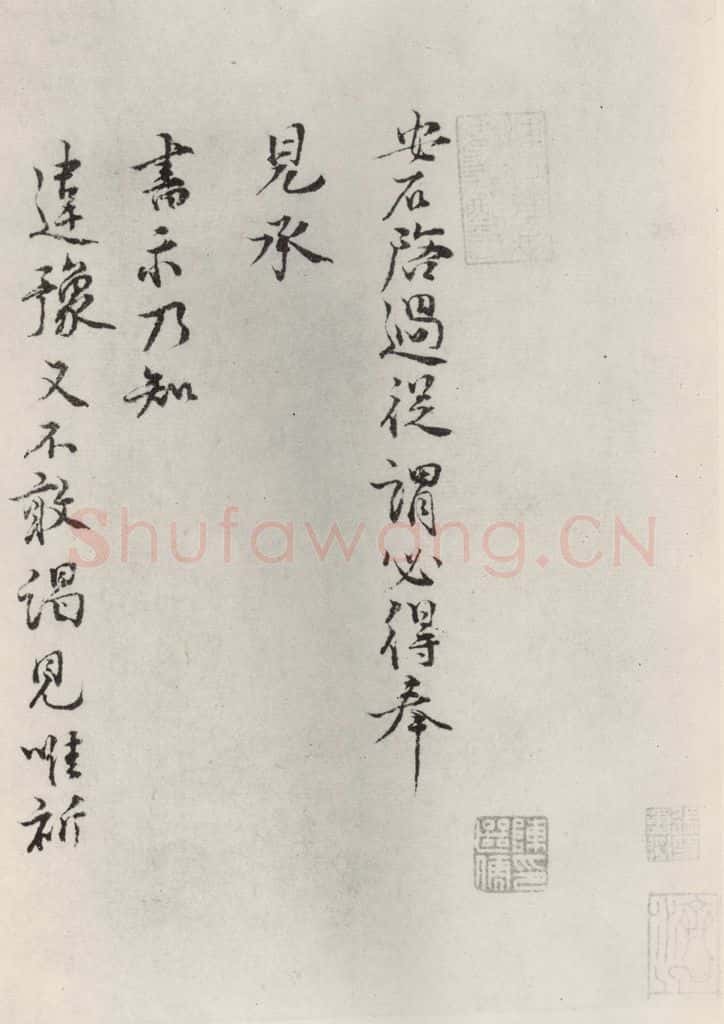 安石啓過從謂必得奉
見承
書示乃知
違豫又不敢謁見唯祈
Shufawang.CN